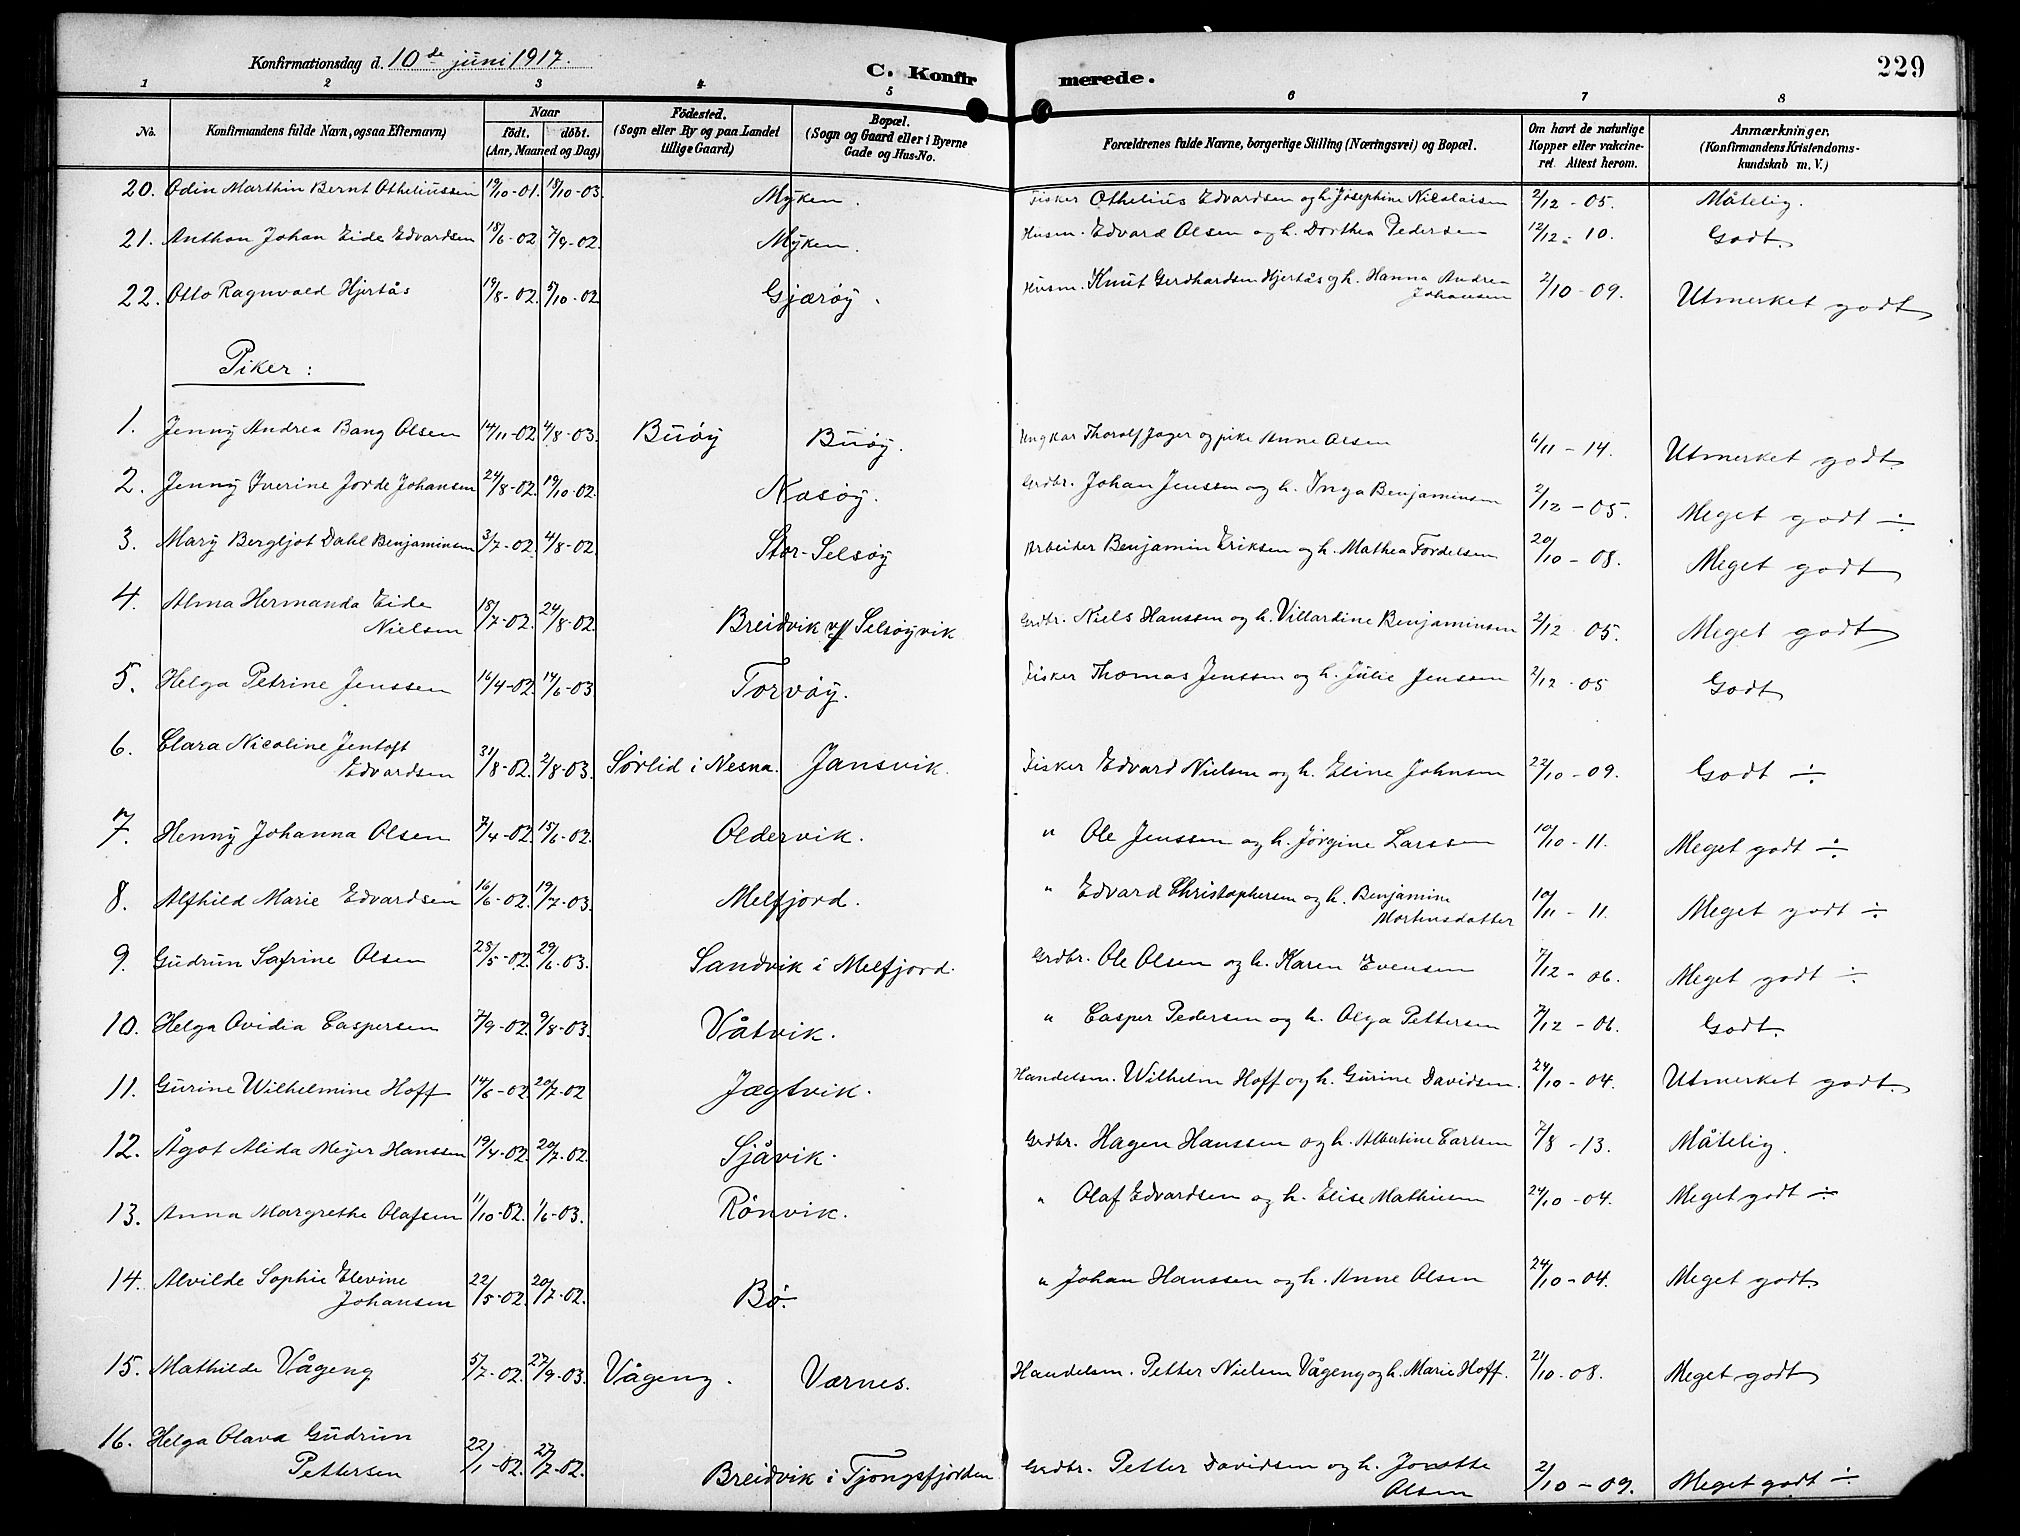 Konfirmationsdag d. 10de juni 1917.
C. Konfirmerede.
229
1 2 3 4 5 6 7 8
No.
Konfirmandens fulde Navn, ogsaa Efternavn)
Naar
födt. döbt.
(Aar, Maaned og Dag)
Födested.
(Sogn eller By og paa Landet
tillige Gaard)
Bopæl.
(Sogn og Gaard eller i Byerne
Gade og Hus-No.
Forældrenes fulde Navne, borgerlige Stilling (Næringsvei) og Bopæl.
Om havt de naturlige
Kopper eller vakcine-
ret. Attest herom.
Anmærkninger.
(Konfirmandens Kristendoms-
kundskab m. V.)
20. Odin Marthin Bernt Otheliussen 19/10-01. 18/10-03. Myken. Fisker Othelius Edvardsen og h. Josephine Nicolaisen 2/12-05. Måtelig.
21. Anthon Johan Eide Edvardsen 18/6-02 7/9-02. Myken. Husm. Edvard Olsen og h. Dorthea Pedersen 12/12-10. Godt.
22. Otto Ragnvald Hjertås 19/8-02. 5/10-02. Gjærøy. Husm. Knut Gerdhardsen Hjertås og h. Hanna Andrea
Johansen 2/10-09. Utmerket godt
Piker:
1. Jenny Andrea Bang Olsen 14/11-02 4/8-03. Buøy Buøy. Ungkar Thoralf Jager og pike Anne Olsen 6/11-14. Utmerket godt
2. Jenny Iverine Jorde Johansen 24/8-02. 19/10-02. Nasøy. Grdbr. Johan Jenssen og h. Inga Benjaminsen 2/12-05. Meget godt ÷
3. Mary Bergljot Dahl Benjaminsen 3/7-02. 4/8-02. Stor-Selsøy Arbeider Benjamin Eriksen og h. Mathea Fordelsen 20/10-08. Meget godt
4. Alma Hermanda Eide
Nielsen 18/7-02. 24/8-02. Breidvik v/ Selsøyvik Grdbr. Niels Hanssen og h. Villardine Benjaminsen 2/12-05. Meget godt
5. Helga Petrine Jenssen 16/4-02. 14/6-03 Torvøy. Fisker Thomas Jenssen og h. Julie Jenssen 2/12-05 Godt
6. Clara Nicoline Jentoft
Edvardsen 31/8-02. 2/8-03. Sørlid i Nesna. Jansvik. Fisker Edvard Nielsen og h. Eline Johnsen 22/10-09. Godt ÷
7. Henny Johanna Olsen 7/4-02. 15/6-02. Oldervik. " Ole Jenssen og h. Jørgine Larssen 10/10-11. Meget godt ÷
8. Alfhild Marie Edvardsen 16/6-02. 19/7-03. Melfjord. " Edvard Christophersen og h. Benjamine
Mortensdatter 10/11-11. Meget godt ÷
9. Gudrun Safrine Olsen 23/5-02. 29/6-03. Sandvik i Melfjord. Grdbr. Ole Olsen og h. Karen Evensen 7/12-06. Meget godt ÷
10. Helga Ovidia Caspersen 7/9-02. 9/8-03. Våtvik. " Casper Pedersen og h. Olga Pettersen 7/12-06. Godt.
11. Gurine Wilhelmine Hoff 14/6-02. 20/7-02 Jægtvik. Handelsm. Wilhelm Hoff og h. Gurine Davidsen. 24/10-04. Utmerket godt.
12. Ågot Alida Meyer Hanssen 19/4-02. 20/7-02. Sjåvik. Grdbr. Hagen Hanssen og h. Albertine Carlsen 7/8-13. Måtelig.
13. Anna Margrethe Olafsen 11/10-02. 1/6-03. Rønvik. " Olaf Edvardsen og h. Elise Mathisen 24/10-04. Meget godt ÷
14. Alvilde Sophie Elevine
Johansen 22/5-02. 20/7-02. Bø. " Johan Hanssen og h. Anne Olsen 24/10-04. Meget godt
15. Mathilde Vågeng 5/7-02. 27/9-03. Vågeng. Værnes. Handelsm. Petter Nielsen Vågeng og h. Marie Hoff. 21/10-08. Meget godt
16. Helga Olava Gudrun
Pettersen 22/1-02. 27/7-02. Breidvik i Tjongsfjorden Grdbr. Petter Davidsen og h. Jonette
Olsen 2/10-09. Meget godt ÷